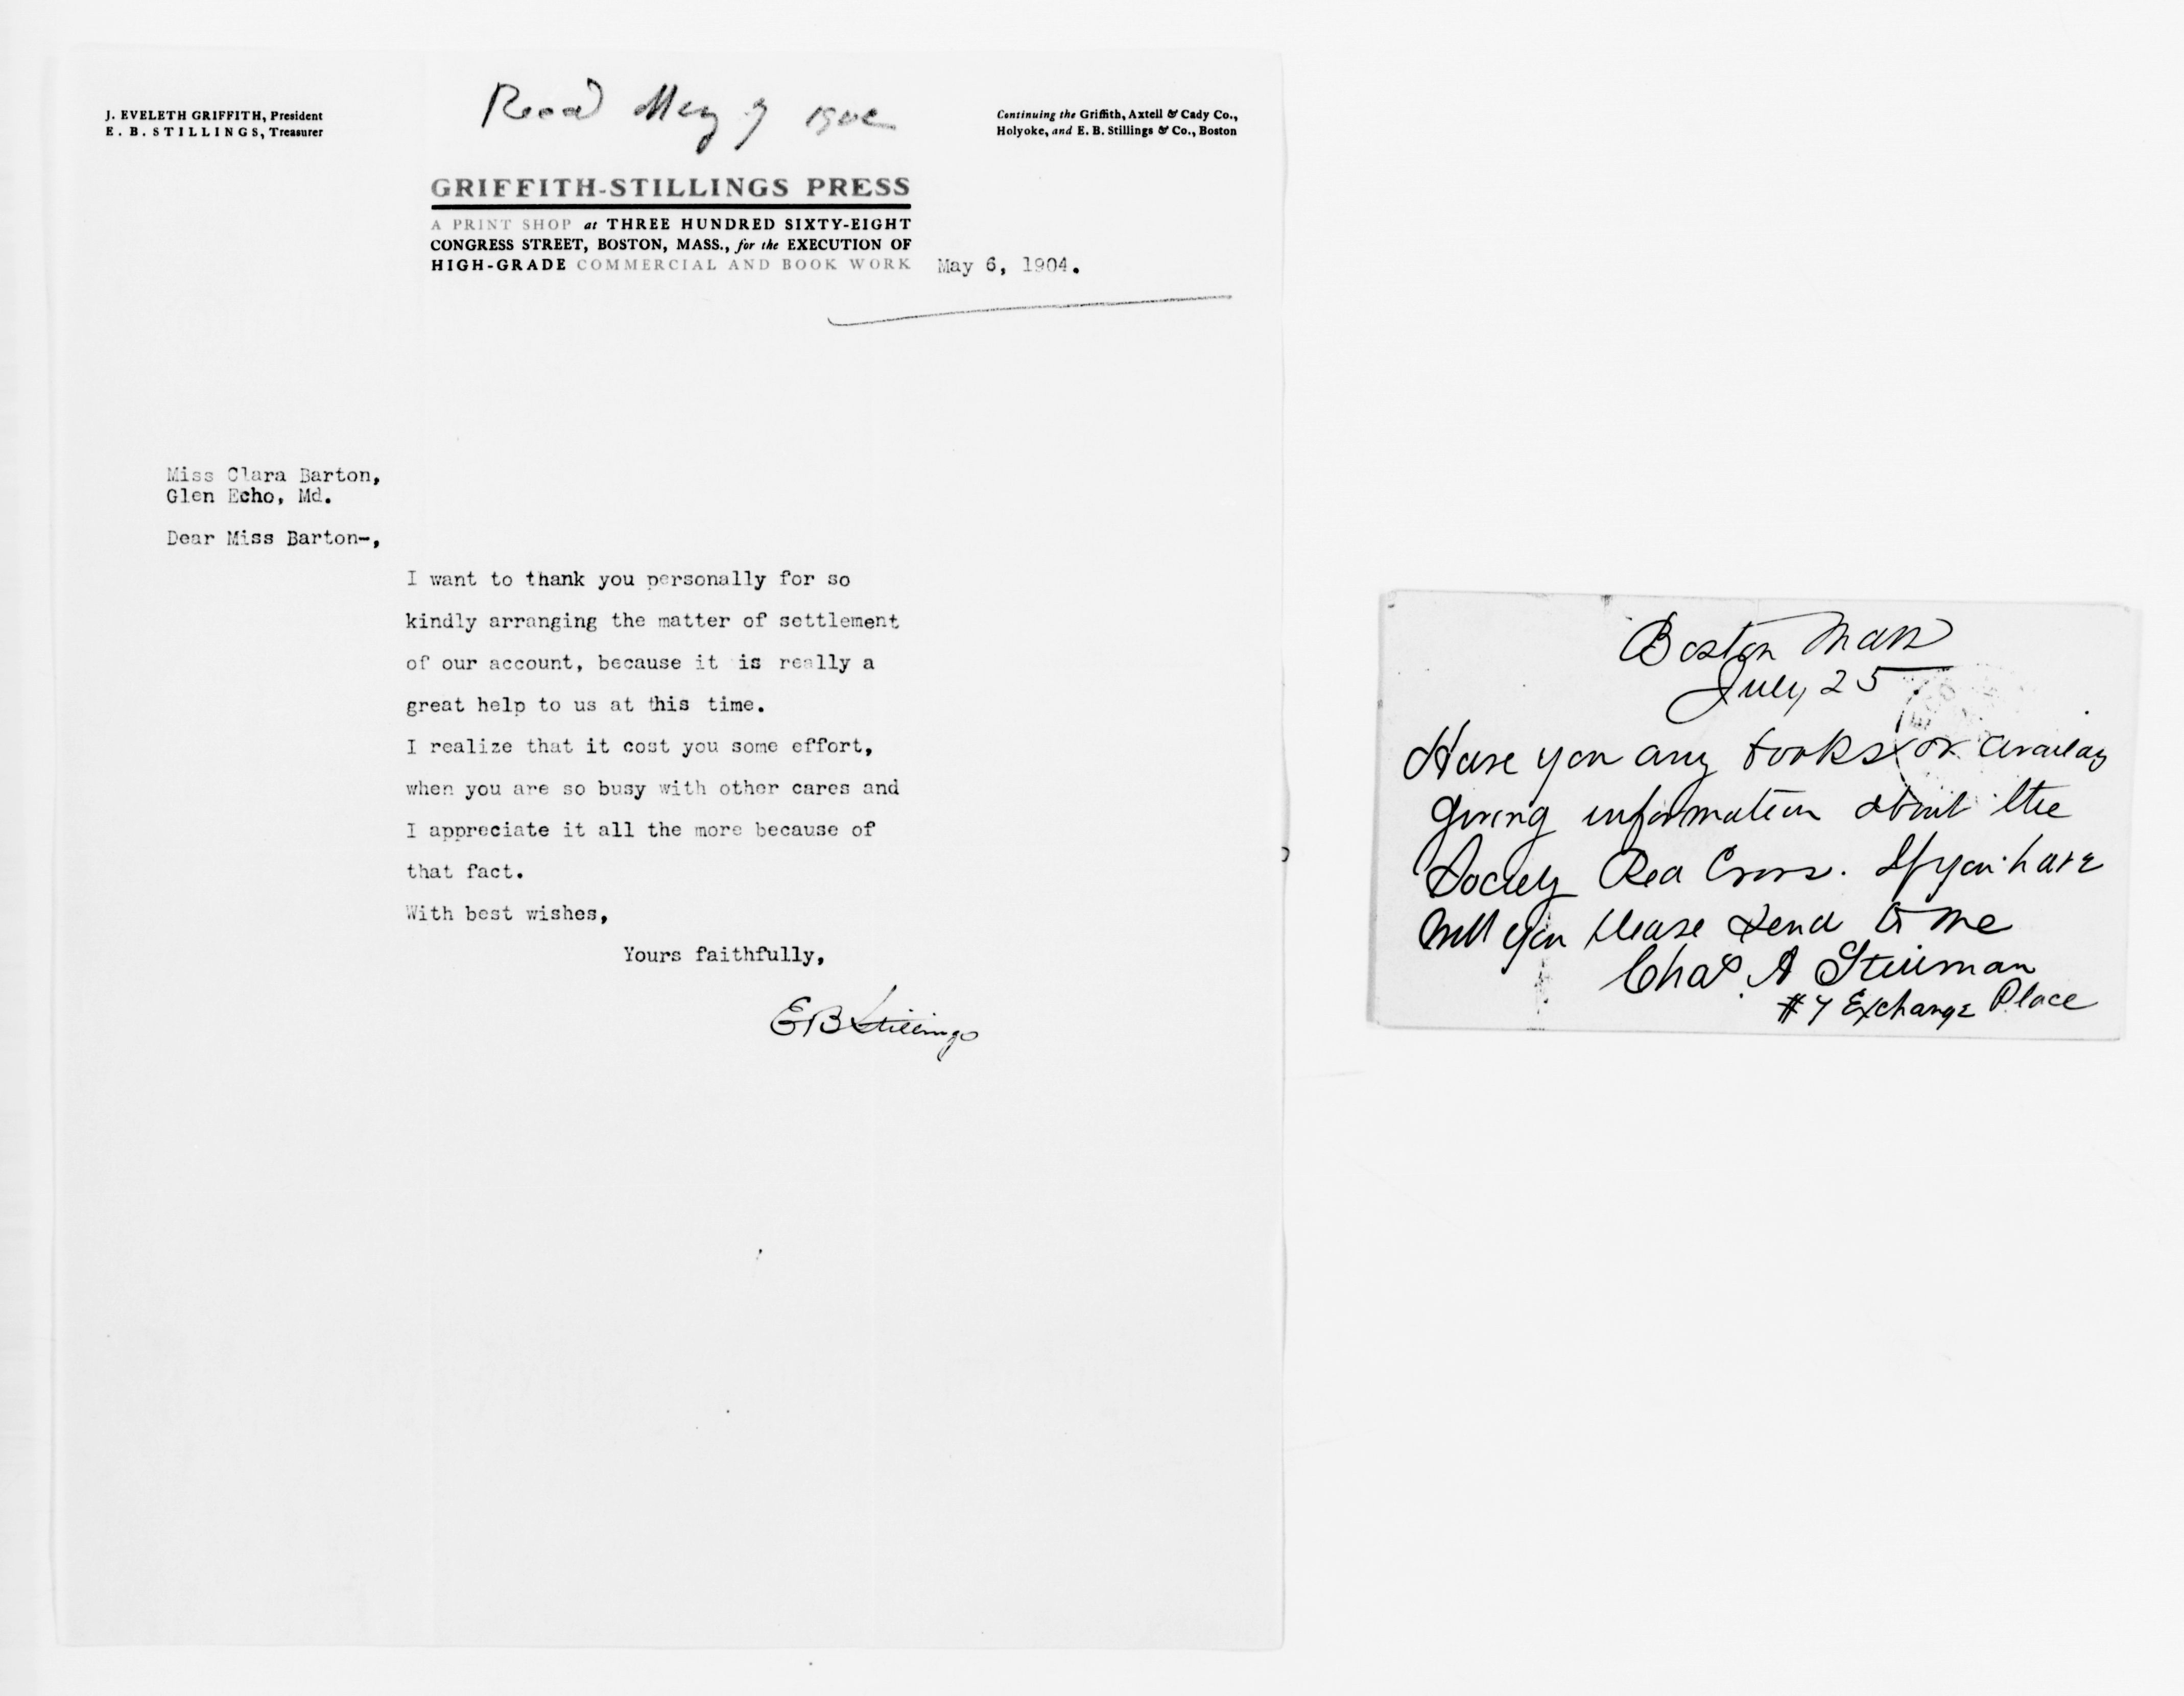 J. EVELETH GRIFFITH, President
E. B. STILLINGS, Treasurer
Recd May 9
Continuing the Griffith, Axtell & Cady Co.,
Holyoke, and E. B. Stillings & Co., Boston
GRIFFITH-STILLINGS PRESS
A PRINT SHOP at THREE HUNDRED SIXTY-EIGHT
CONGRESS STREET, BOSTON, MASS., for the EXECUTION OF
HIGH-GRADE COMMERCIAL AND BOOK WORK
May 6, 1904.
Miss Clara Barton,
Glen Echo, Md.
Dear Miss Barton-,
I want to thank you personally for so
kindly arranging the matter of settlement
of our account, because it is really a
great help to us at this time.
I realize that it cost you some effort,
when you are so busy with other cares and
I appreciate it all the more because of
that fact.
With best wishes,
Yours faithfully,
E B Stillings
Boston Mass
July 25
Have you any books or
giving information about the
Society Red Cross. If you have
will you please send to me
Chas. A
#7 Exchange Place